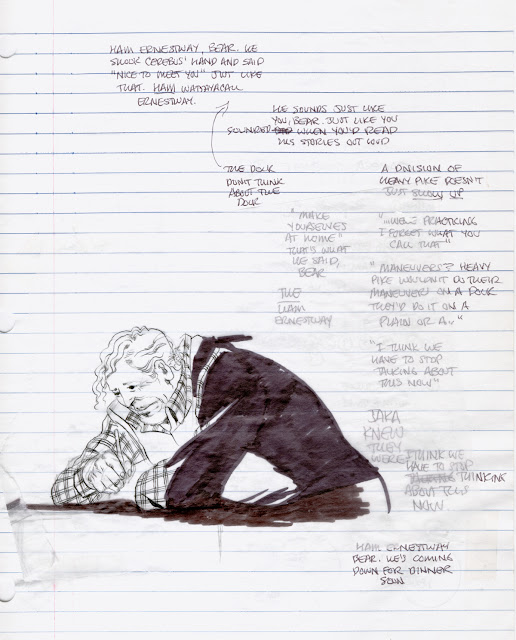 HAM ERNESTWAY, BEAR. HE
SHOOK CEREBUS' HAND AND SAID
"NICE TO MEET YOU" JUST LIKE
THAT. HAM WATTAYACALL
ERNESTWAY.
HE SOUNDS JUST LIKE
YOU, BEAR. JUST LIKE YOU
SOUNDED WHEN YOU'D READ
HIS STORIES OUT LOUD
THE DOCK
DON'T THINK
ABOUT THE
DOCK
A DIVISION OF
HEAVY PIKE DOESN'T
JUST SHOW UP
"MAKE
YOURSELVES
AT HOME"
THAT'S WHAT
HE SAID,
BEAR
THE
HAM
ERNESTWAY
"...WE'RE PRACTICING
I FORGET WHAT YOU
CALL THAT"
"MANEUVERS? HEAVY
PIKE WOULDN'T DO THEIR
MANEUVERS ON A DOCK
THEY'D DO IT ON A
PLAIN OR A..."
"I THINK WE
HAVE TO STOP
TALKING ABOUT
THIS NOW"
JAKA
KNEW
THEY
WERE
I THINK WE
HAVE TO STOP
TALKING THINKING
ABOUT THIS
NOW.
HAM ERNESTWAY
BEAR. HE'S COMING
DOWN FOR DINNER
SOON